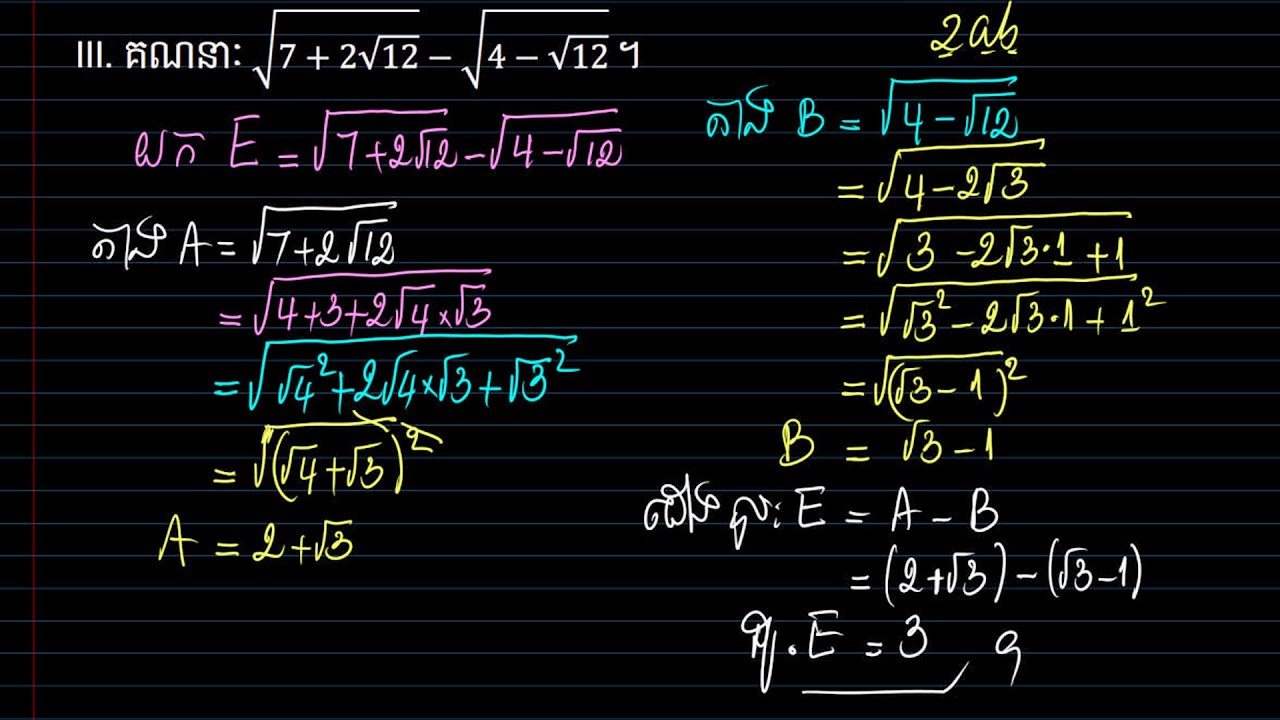 III. គណនា: √(7 + 2√12) − √(4 − √12) ។
យក E = √(7+2√12) − √(4−√12)
តាង A = √(7+2√12)
= √(4+3+2√4×√3)
= √(√4²+2√4×√3+√3²)
= √(√4+√3)²
A = 2+√3
2ab
តាង B = √(4−√12)
= √(4−2√3)
= √(3−2√3·1+1)
= √(√3²−2√3·1+1²)
= √(√3−1)²
B = √3−1
E = A − B
= (2+√3)−(√3−1)
E = 3 ។